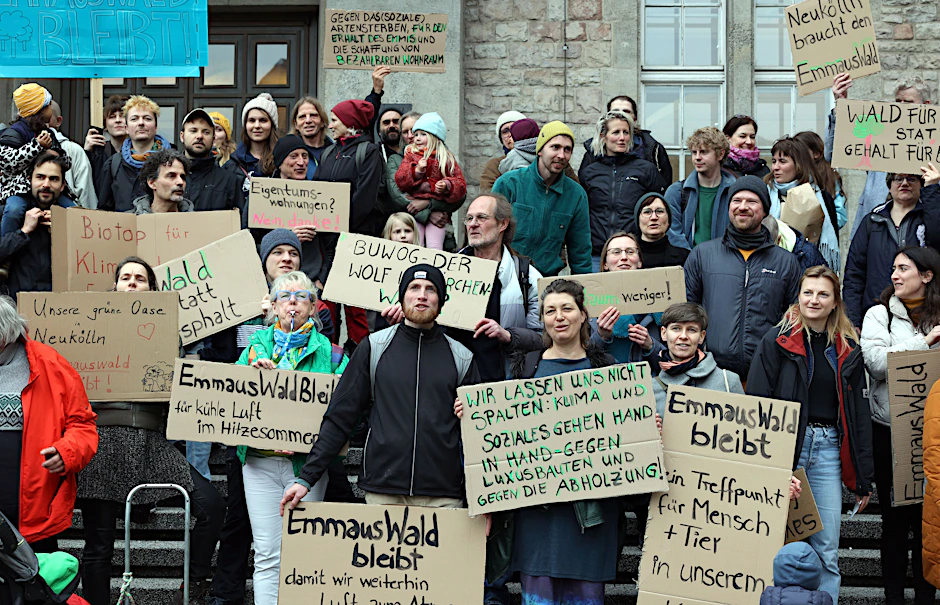 BLEIBT!
GEGEN DAS (SOZIALE)
ARTENSTERBEN, FÜR DEN
ERHALT DES EMMIS UND
DIE SCHAFFUNG VON
BEZAHLBAREN WOHNRAUM
Neukölln
braucht den
EmmausWald
WALD
STAT
GEHALT FÜR
Eigentums-
wohnungen?
Nein, danke!
Biotop für
Klim
Wald
tatt
sphalt
BUWOG-DER
WOLF
RCHEN
weniger!
Unsere grüne Oase
Neukölln
auswald
bt!
EmmausWaldBleibt
für kühle Luft
im Hitzesommer
WIR LASSEN UNS NICHT
SPALTEN: KLIMA UND
SOZIALES GEHEN HAND
IN HAND-GEGEN
LUXUSBAUTEN UND
GEGEN DIE ABHOLZUNG!
EmmausWald
bleibt
in Treffpunkt
für Mensch
+ Tier
in unserem
EmmausWald
bleibt
damit wir weiterhin
Luft zum